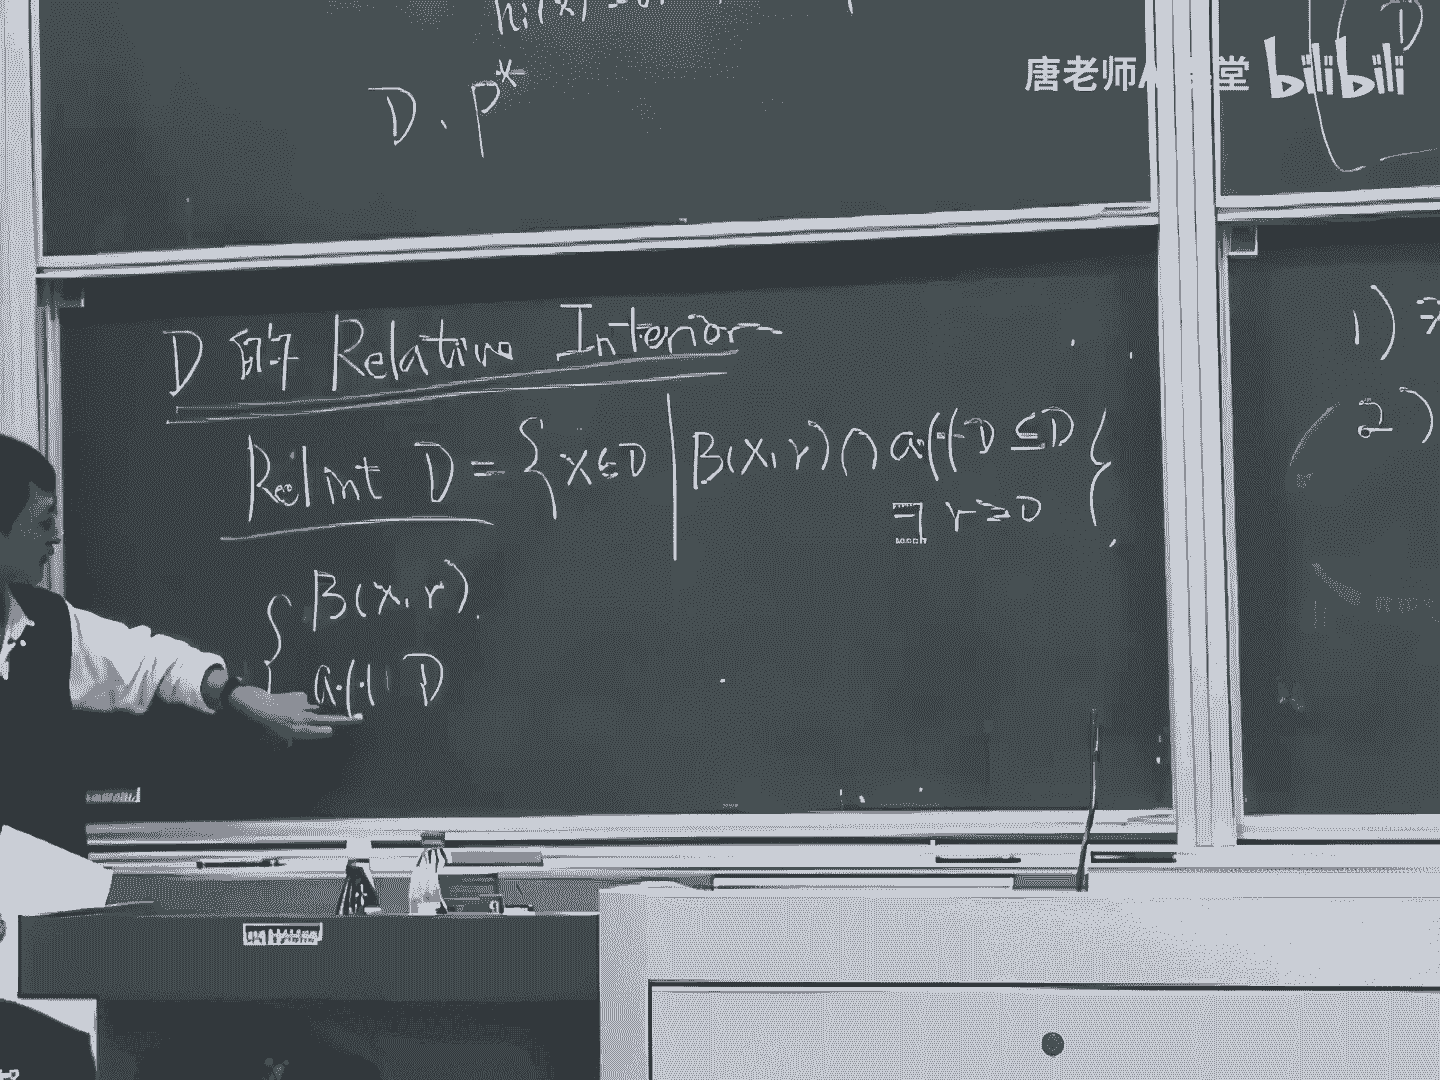 D. P*
唐老师A 堂 bilibili
D
D 的 Relative Interior
Relint D = {x∈D | B(x,r) ∩ aff D ⊆ D
∃ r≥0 }
{ B(x,r)
aff D
1)
2)